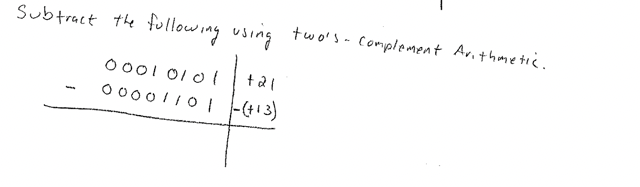 Subtract the following using two's-Complement Arithmetic.
00010101 +21
- 00001101 -(+13)